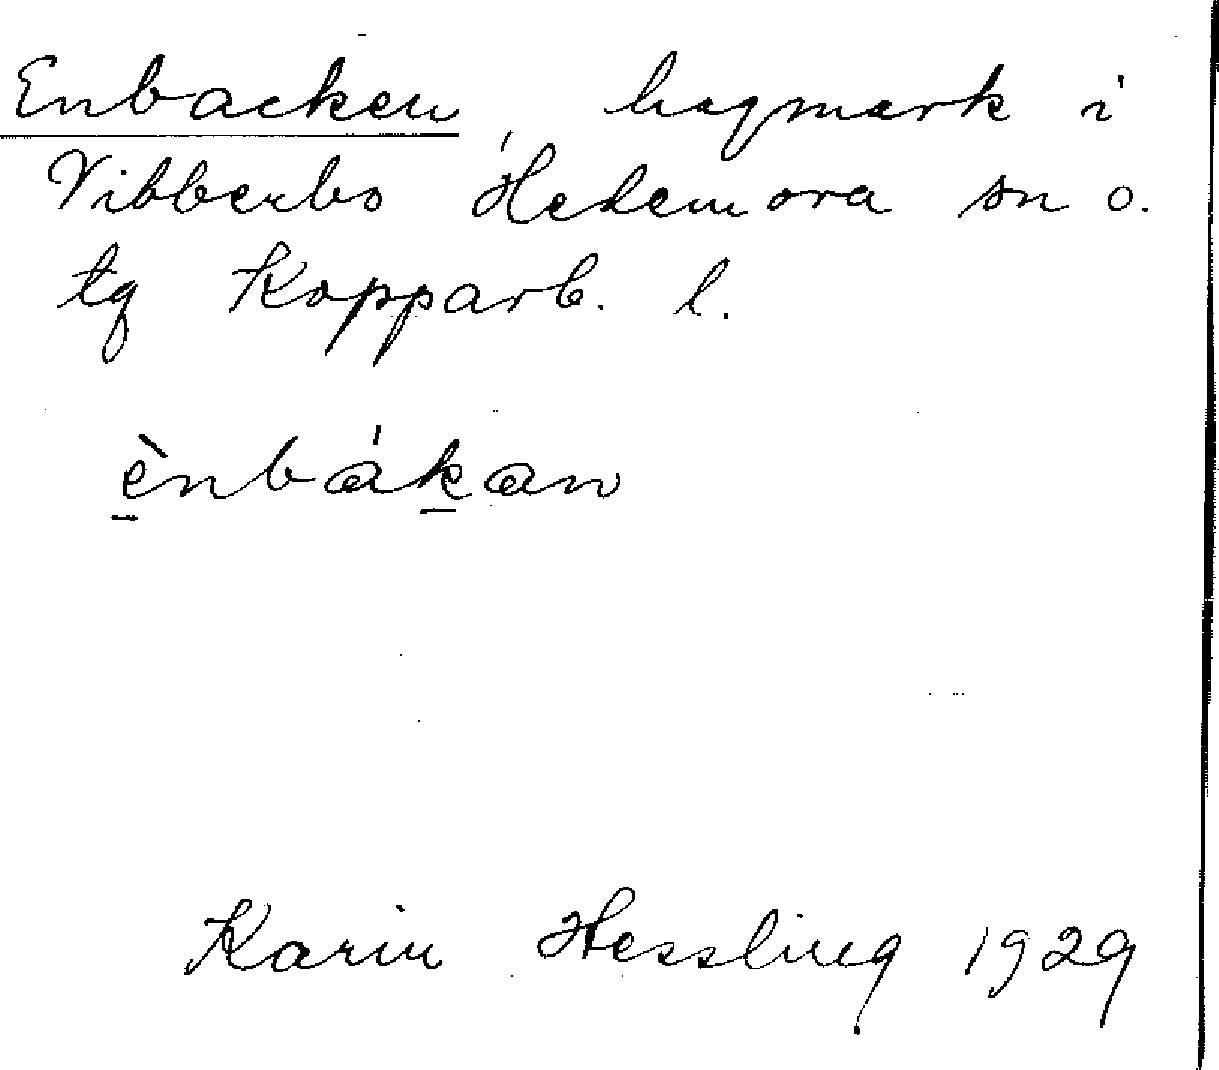 Enbacken, hagmark i
Vibberbo Hedemora sn o.
tg Kopparb. l.
ènbákan
Karin Hessling 1929